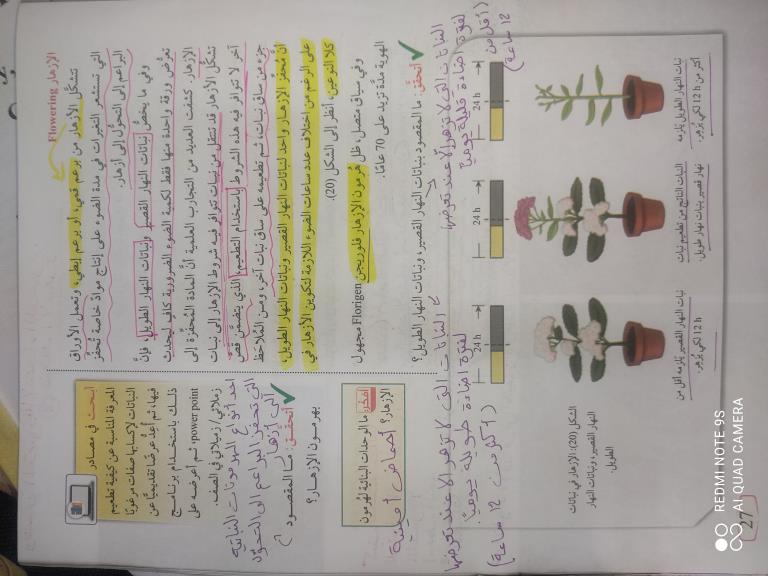 الإزهار Flowering
تتشكّل الأزهار من برعم قمّي، أو برعم إبطي، وتعمل الأوراق
التي تستشعر التغيرات في مدة الضوء على إنتاج موادّ خاصة تُحفّز
البراعم إلى التحوّل إلى أزهار.
وفي ما يخصُّ نباتات النهار القصير ونباتات النهار الطويل، فإنَّ
تعرُّض ورقة واحدة منها فقط لكمية الضوء الضرورية كافٍ ليحدث
الإزهار. كشفت العديد من التجارب العلمية أنَّ المادة المُحفِّزة إلى
تشكُّل الأزهار قد تنتقل من نبات تتوافر فيه شروط الإزهار إلى نبات
آخر لا تتوافر فيه هذه الشروط باستخدام التطعيم؛ الذي يتضمَّن قصّ
جزء من ساق نبات، ثم تطعيمه على ساق نبات آخر، ومن المُلاحَظ
أنَّ مُحفِّز الإزهار واحد لنباتات النهار القصير ونباتات النهار الطويل،
على الرغم من اختلاف عدد ساعات الضوء اللازمة لتكوين الأزهار في
كلا النوعين. أنظر إلى الشكل (20).
وفي سياق متصل، ظل هُرمون الإزهار فلوريجين Florigen مجهول
الهوية مدَّة تزيد على 70 عامًا.
أتحقَّق: ما المقصود بنباتات النهار القصير، ونباتات النهار الطويل؟
النباتات التي لا تزهر إلا عند تعرضها
لفترة إضاءة قليلة يوميًا
(أقل من
12 ساعة)
النباتات التي لا تزهر إلا عند تعرضها
لفترة إضاءة طويلة يوميًا.
(أكثر من 12 ساعة)
أبحث في مصادر
المعرفة المناسبة عن كيفية تطعيم
النباتات لإكسابها صفات مرغوبًا
فيها، ثم أُعِدُّ عرضًا تقديميًّا عن
ذلك باستخدام برنامج
power point، ثم أعرضه على
زملائي/ زميلاتي في الصف.
أتحقَّق: ما المقصود
بهرمون الإزهار؟
احد أنواع الهرمونات النباتية
التي تحفز البراعم الى التحوّل
الى أزهار
أفكِّر ما الوحدات البنائية لهُرمون
الإزهار؟
أحماض أمينية
24 h
24 h
24 h
نبات النهار الطويل يلزمه
أكثر من 12 h لكي يُزهِر.
النبات الناتج من تطعيم نبات
نهار قصير بنبات نهار طويل.
نبات النهار القصير يلزمه أقل من
12 h لكي يُزهِر.
الشكل (20): الإزهار في نباتات
النهار القصير، ونباتات النهار
الطويل.
27
REDMI NOTE 9S
AI QUAD CAMERA